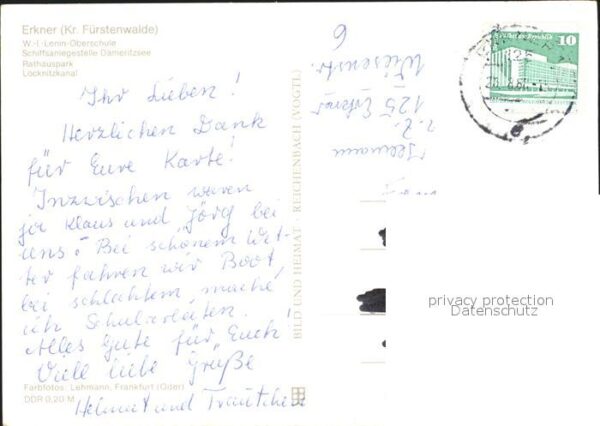 Erkner (Kr. Fürstenwalde)
W.-I.-Lenin-Oberschule
Schiffsanlegestelle Dämeritzsee
Rathauspark
Löcknitzkanal
Ihr Lieben!
Herzlichen Dank
für Eure Karte!
Inzwischen waren
ja Klaus und Jörg bei
uns. Bei schönem Wet-
ter fahren wir Boot,
bei schlechtem mache
ich Schularbeiten.
Alles Gute für Euch!
Viele liebe Grüße
Helmut und Trautchen
Farbfotos: Lehmann, Frankfurt (Oder)
DDR 0,20 M
BILD UND HEIMAT · REICHENBACH (VOGTL)
z. Z.
125 Erkner
Wiesenstr.
6
10
privacy protection
Datenschutz